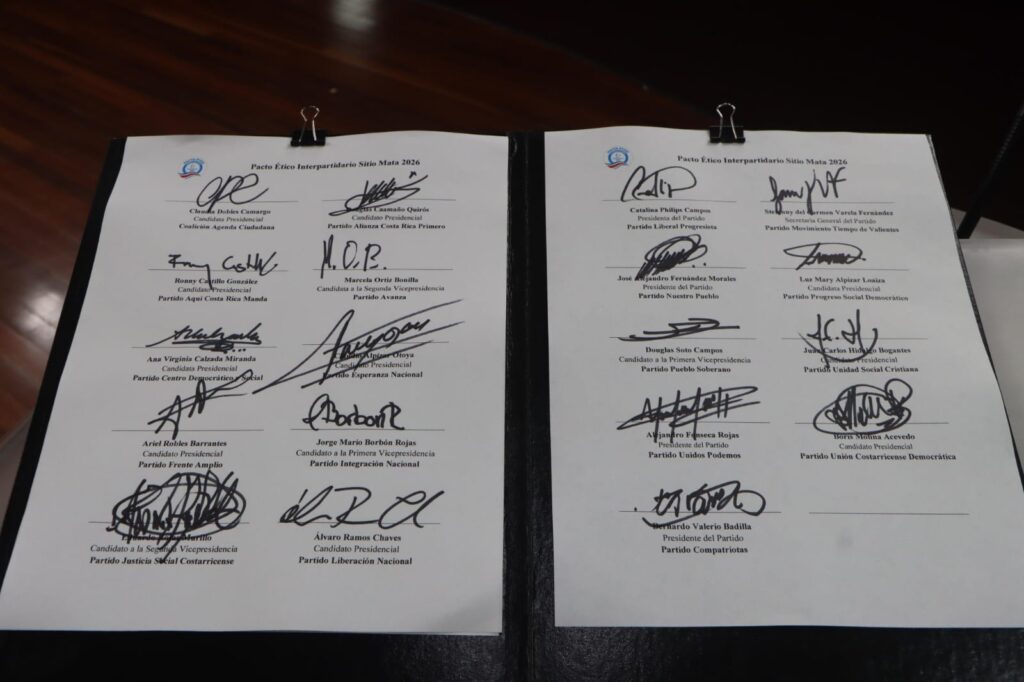 Pacto Ético Interpartidario Sitio Mata 2026
Claudia Dobles Camargo
Candidata Presidencial
Coalición Agenda Ciudadana
Douglas Caamaño Quirós
Candidato Presidencial
Partido Alianza Costa Rica Primero
Ronny Castillo
Ronny Castillo González
Candidato Presidencial
Partido Aquí Costa Rica Manda
M.O.B.
Marcela Ortiz Bonilla
Candidata a la Segunda Vicepresidencia
Partido Avanza
Ana Virginia Calzada Miranda
Candidata Presidencial
Partido Centro Democrático y Social
Alpízar Otoya
Candidato Presidencial
Partido Esperanza Nacional
Ariel Robles Barrantes
Candidato Presidencial
Partido Frente Amplio
JBorbónR
Jorge Mario Borbón Rojas
Candidato a la Primera Vicepresidencia
Partido Integración Nacional
Eduardo Rojas Murillo
Candidato a la Segunda Vicepresidencia
Partido Justicia Social Costarricense
Álvaro Ramos Chaves
Candidato Presidencial
Partido Liberación Nacional
Pacto Ético Interpartidario Sitio Mata 2026
Catalina Philips Campos
Presidenta del Partido
Partido Liberal Progresista
del Carmen Varela Fernández
Secretaria General del Partido
Partido Movimiento Tiempo de Valientes
José Alejandro Fernández Morales
Presidente del Partido
Partido Nuestro Pueblo
Luz Mary Alpízar Loaiza
Candidata Presidencial
Partido Progreso Social Democrático
Douglas Soto Campos
Candidato a la Primera Vicepresidencia
Partido Pueblo Soberano
Juan Carlos Hidalgo Bogantes
Candidato Presidencial
Partido Unidad Social Cristiana
Alejandro Fonseca Rojas
Presidente del Partido
Partido Unidos Podemos
Boris Molina Acevedo
Candidato Presidencial
Partido Unión Costarricense Democrática
Bernardo Valerio Badilla
Presidente del Partido
Partido Compatriotas